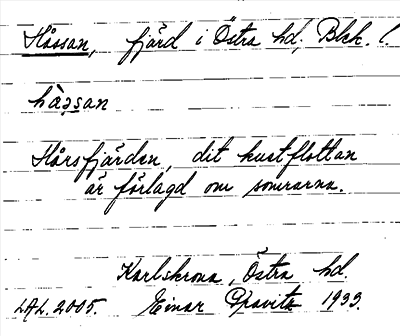 Håssan, fjärd i Östra hd, Blek. l.
hàʂsan
Hårsfjärden, dit kustflottan
är förlagd om somrarna.
Karlskrona, Östra hd.
LAL. 2005. Einar 1933.